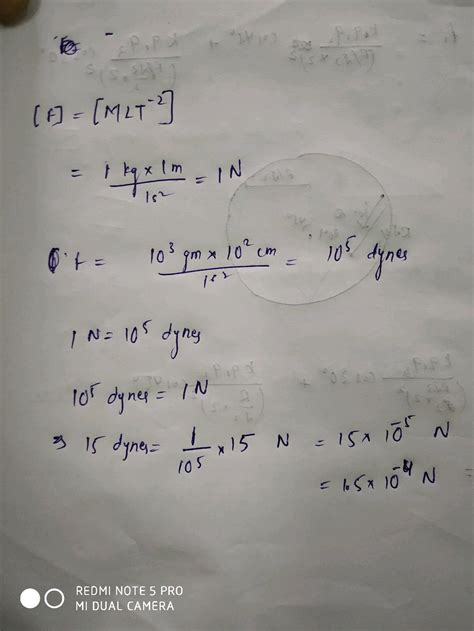 [F] = [MLT⁻²]
= 1 kg × 1m / 1s² = 1N
f = 10³ gm × 10² cm / 1s² = 10⁵ dynes
1 N = 10⁵ dynes
10⁵ dynes = 1N
⇒ 15 dynes = 1/10⁵ × 15 N = 15 × 10⁻⁵ N
= 1.5 × 10⁻⁴ N
REDMI NOTE 5 PRO
MI DUAL CAMERA